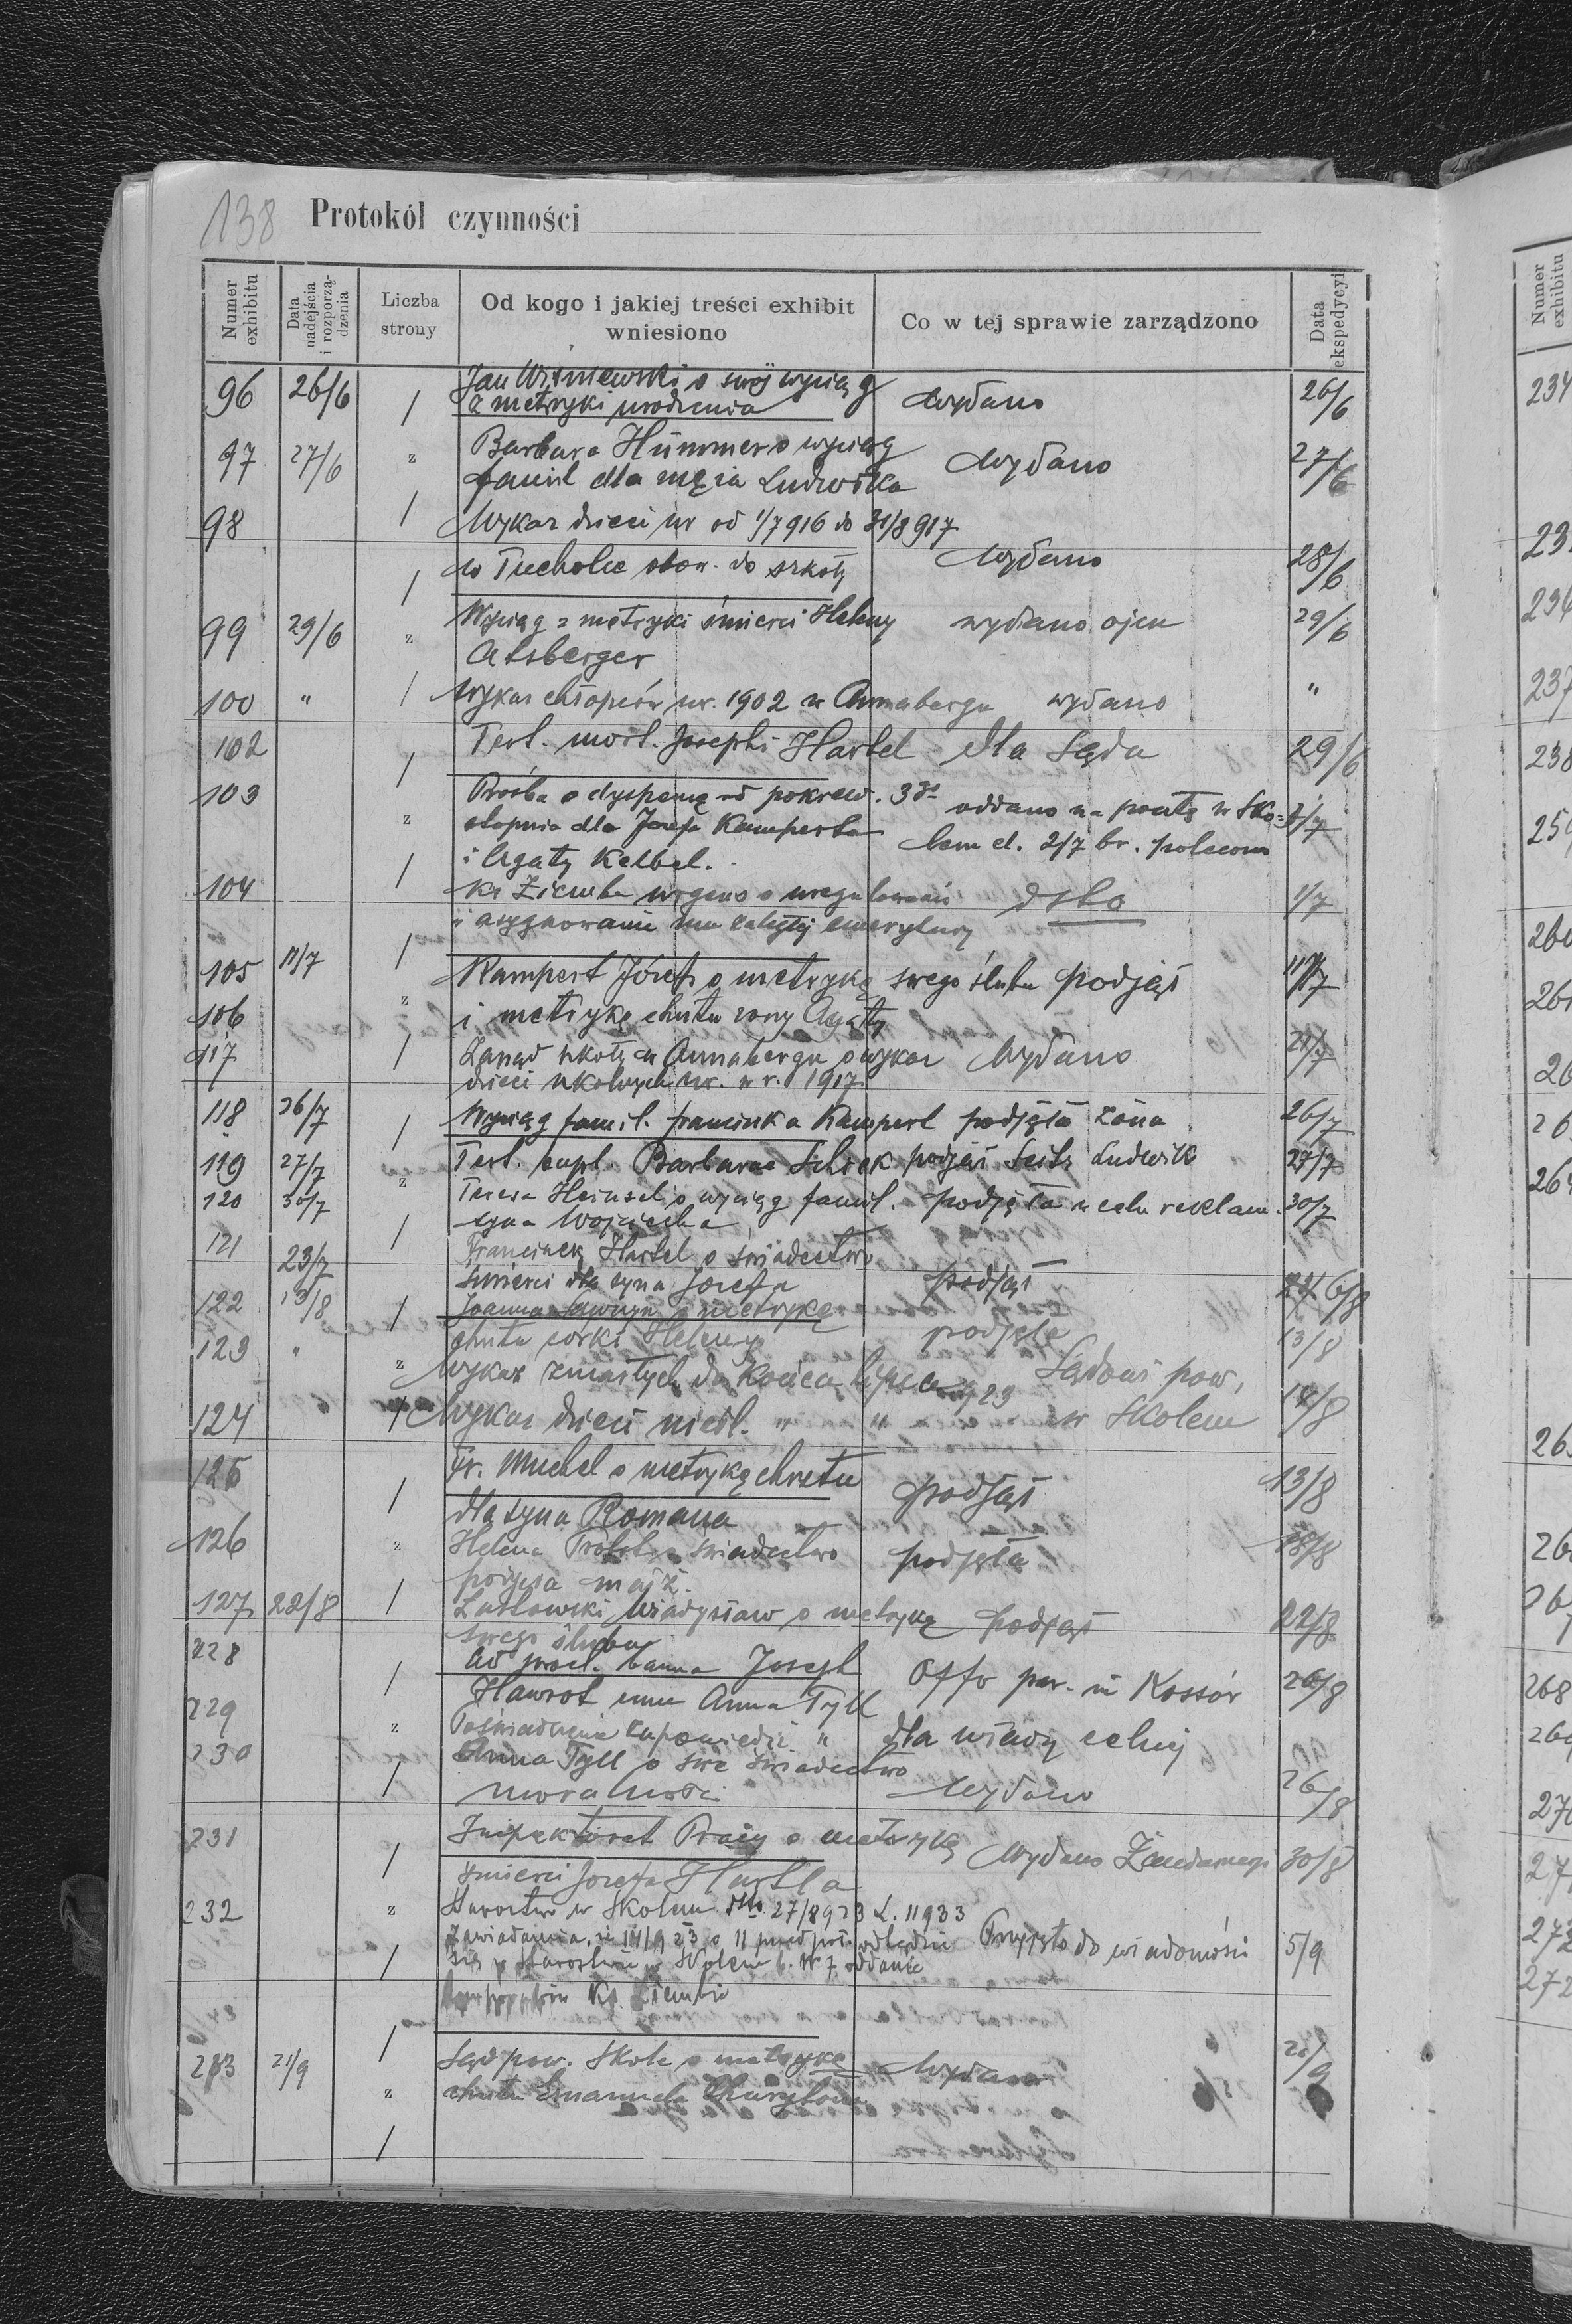 138 Protokół czynności
Numer exhibitu
Data nadejścia i rozporządzenia
Liczba strony
Od kogo i jakiej treści exhibit wniesiono
Co w tej sprawie zarządzono
Data ekspedycyi
96 26/6 Jan Wiśniewski o swój wyciąg wydano 26/6
z metryki urodzenia
97 27/6 z Barbara Hümmer o wyciąg wydano 27/6
famil dla męża Ludwika
98 Wykaz dzieci ur od 1/7 916 do 31/8 917
w Tucholce obow. do szkoły wydano 28/6
99 29/6 z Wyciąg z metryki śmierci Heleny wydano ojcu 29/6
Atsberger
100 " Wykaz chłopców ur. 1902 w Annabergu wydano "
102 Test. mort. Josephi Hartel dla Sądu 29/6
103 Prośba o dyspensę od pokrew. 3go oddano na pocztę w Sko= /7
z stopnia dla Józefa Kamperta lem d. 2/7 br. polecono
i Agaty Keibel.
104 Ks Ziemba urgens o uregulowanie dtto 1/7
i asygnowanie mu zaległej emerytury
105 11/7 Kampert Józef o metrykę swego ślubu podjął 11/7
106 z i metrykę chrztu żony Agaty
117 Zarząd szkoły w Annabergu o wykaz wydano
dzieci szkolnych ur. w r. 1917
118 26/7 Wyciąg famil. Franciszka Kampert podjęła żona 26/7
119 27/7 z Test. bapt. Barbarae Schick podjął Seitz Ludwik 27/7
120 30/7 Teresa Heinsel o wyciąg famil. podjęła w celu reklam. 30/7
syna Wojciecha
121 23/7 Franciszek Hartel o świadectwo
śmierci dla syna Józefa podjął 6/8
122 13/8 Joanna o metrykę
chrztu córki Heleny podjęła 13/8
123 " z Wykaz zmarłych do końca lipca 923 Sądowi pow.
124 Wykaz dzieci nieśl. " " w Skolem 14/8
125 Fr. Muchel o metrykę chrztu podjął 13/8
dla syna Romana
126 z Helena o świadectwo podjęła 18/8
pożycia małż.
127 22/8 Władysław o metrykę podjął 22/8
swego ślubu
228 Ad procl. banna Joseph Offo par. in Kossów 26/8
Hawrot cum Anna Tyll
229 z Poświadczenie zapowiedzi " dla władzy celnej
230 Anna Tyll o swe świadectwo
moralności wydano 26/8
231 Inspektorat Pracy o metrykę Wydano Żandarmeryi 30/8
śmierci Józefa Hartla
232 z Starostwo w Skolem dtto 27/8 923 L. 11933
Zawiadamia, że 14/9 23 o 11 przed poł. odbędzie Przyjęto do wiadomości 5/9
się w Starostwie w Skolem b. Nr 7 oddanie
Ks. Ziembie
233 21/9 Sąd pow. Skole o metrykę Wydano
z chrztu Emanuela